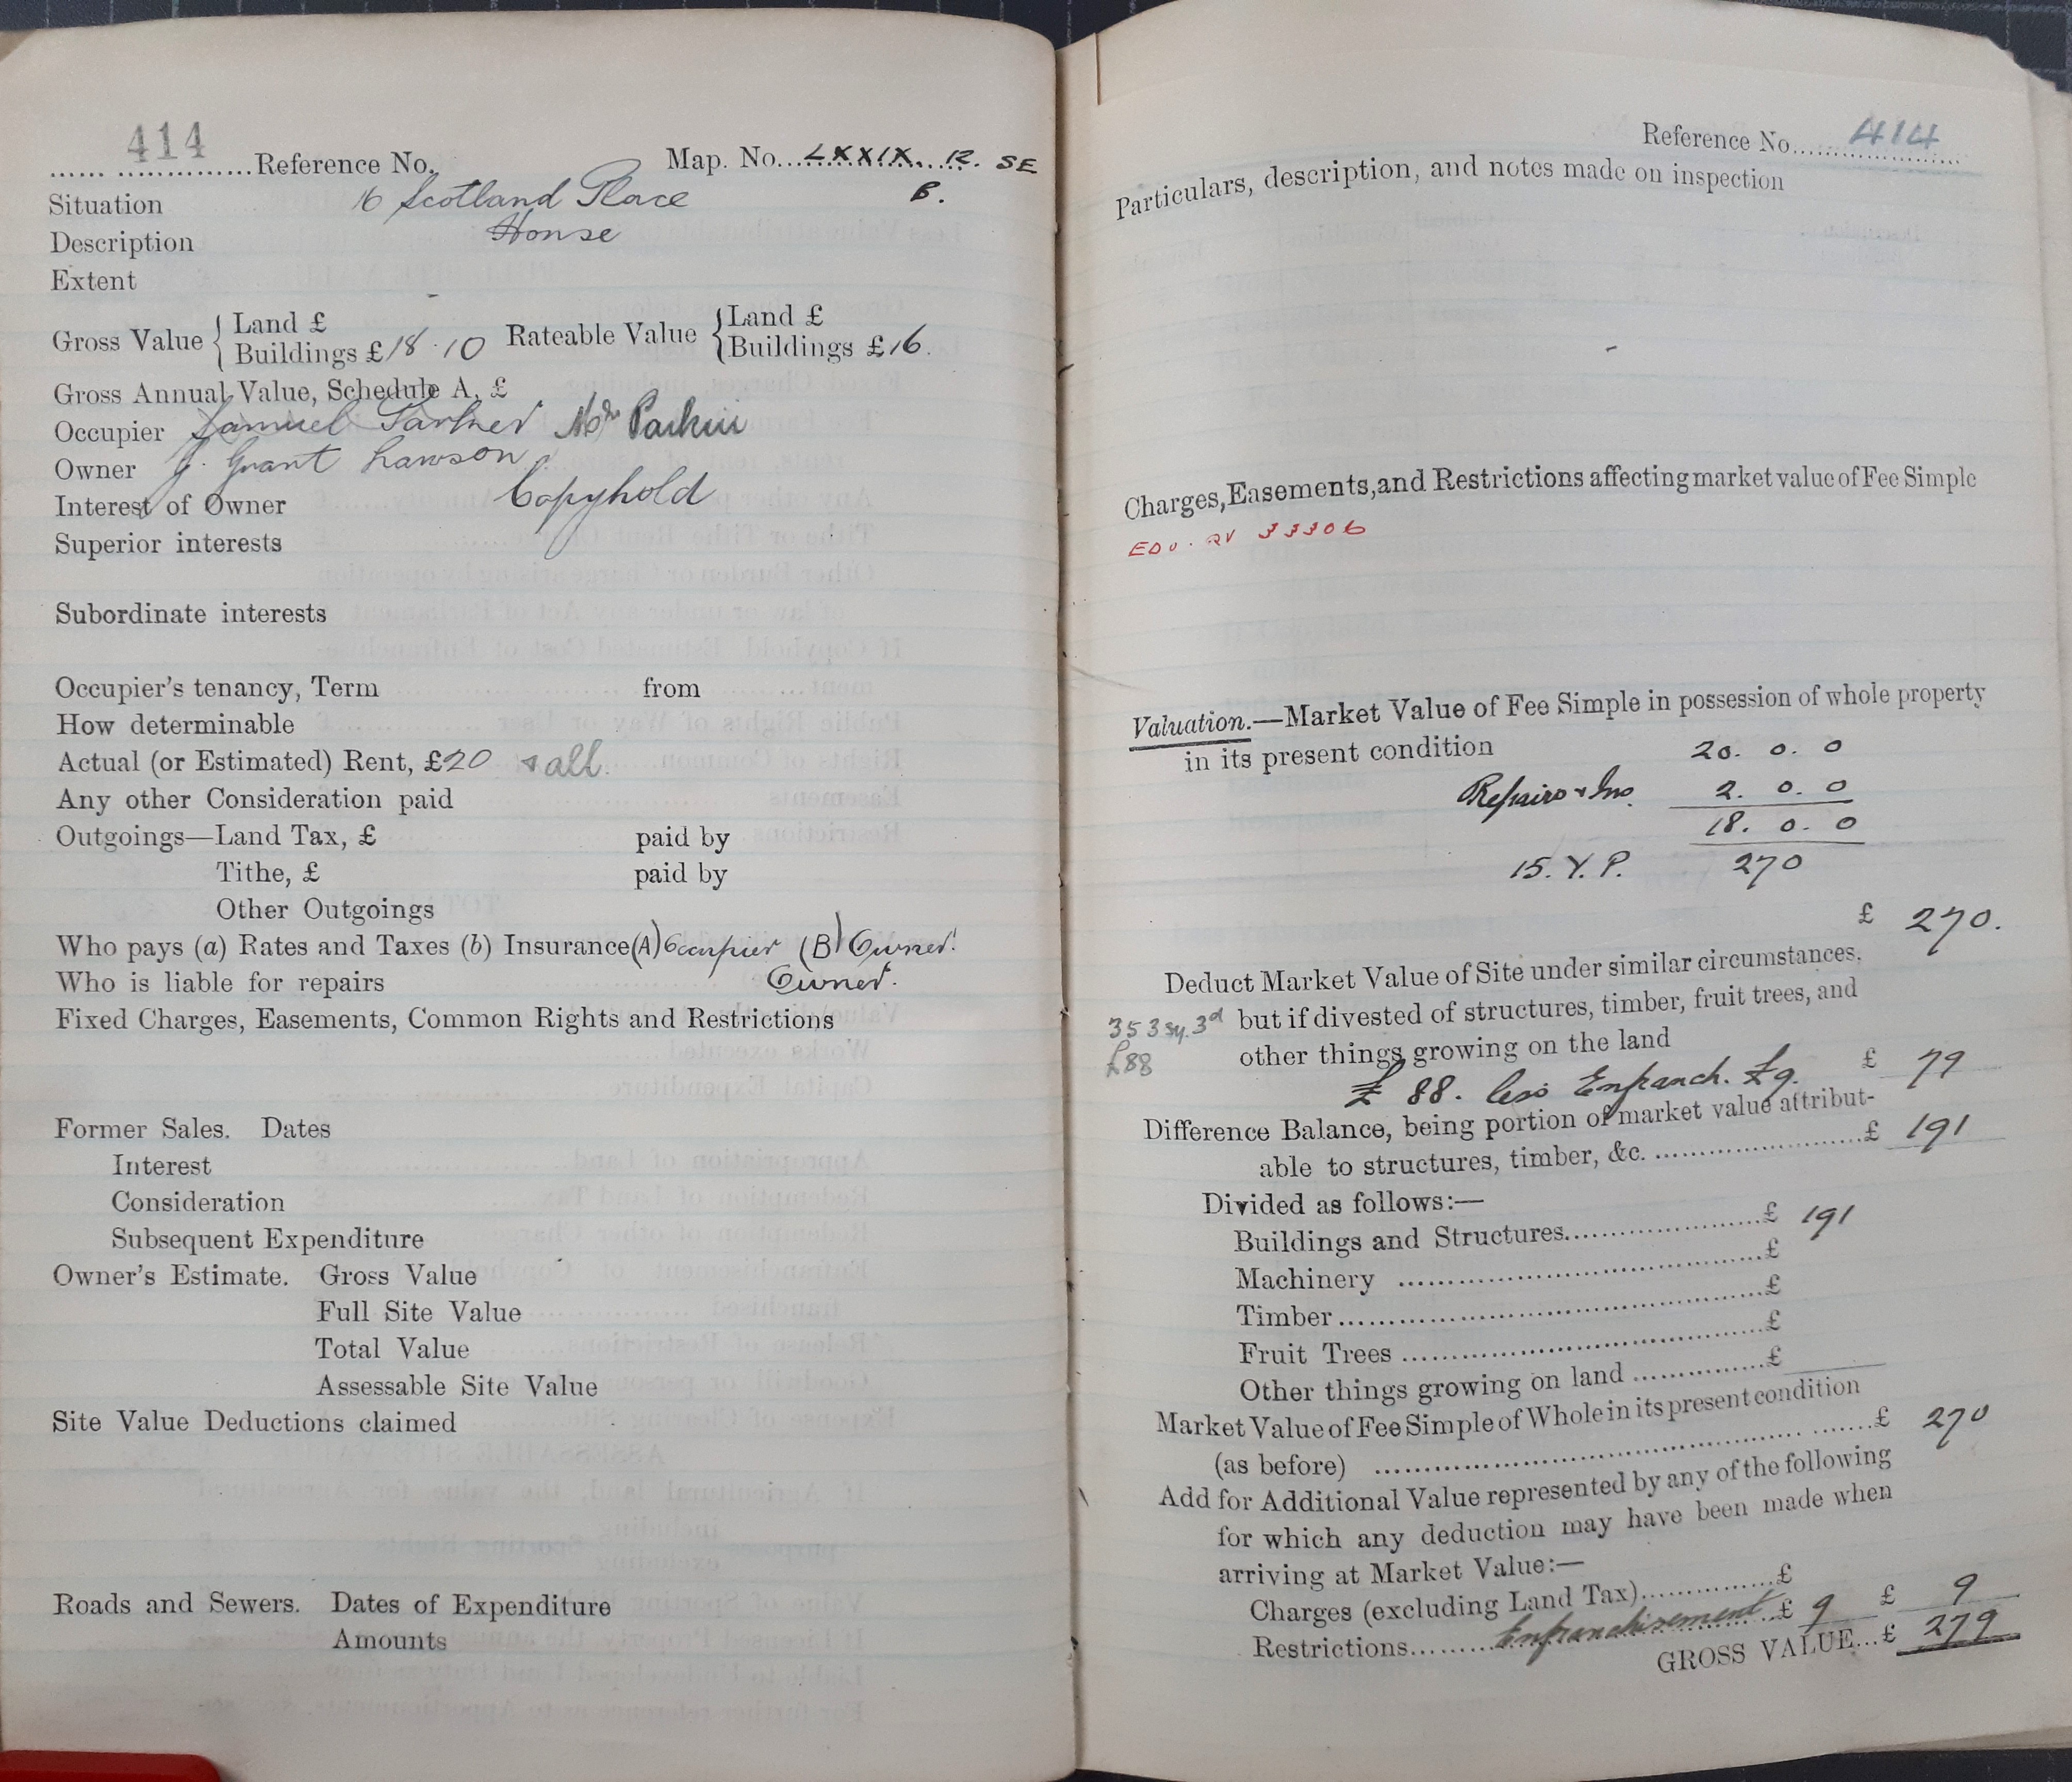 414
...... ..............Reference No. Map. No...LXXIX. 12. SE
B.
Situation 16 Scotland Place
Description House
Extent
Gross Value { Land £ Rateable Value { Land £
Buildings £18.10 Buildings £16.
Gross Annual Value, Schedule A, £
Occupier Samuel Mrs Parkin
Owner J. Grant Lawson
Interest of Owner Copyhold
Superior interests
Subordinate interests
Occupier's tenancy, Term from
How determinable
Actual (or Estimated) Rent, £20 & all.
Any other Consideration paid
Outgoings—Land Tax, £ paid by
Tithe, £ paid by
Other Outgoings
Who pays (a) Rates and Taxes (b) Insurance (A) Occupier (B) Owner.
Who is liable for repairs Owner.
Fixed Charges, Easements, Common Rights and Restrictions
Former Sales. Dates
Interest
Consideration
Subsequent Expenditure
Owner's Estimate. Gross Value
Full Site Value
Total Value
Assessable Site Value
Site Value Deductions claimed
Roads and Sewers. Dates of Expenditure
Amounts
Reference No. 414
Particulars, description, and notes made on inspection
Charges, Easements, and Restrictions affecting market value of Fee Simple
33306
Valuation.—Market Value of Fee Simple in possession of whole property
in its present condition 20. 0. 0
Repairs & Ins. 2. 0. 0
18. 0. 0
15. Y. P. 270
£ 270.
Deduct Market Value of Site under similar circumstances,
353 sy. 3d but if divested of structures, timber, fruit trees, and
£88 other things growing on the land £ 79
£ 88. less Enfranch. £9.
Difference Balance, being portion of market value attribut-
able to structures, timber, &c. ........................£ 191
Divided as follows:—
Buildings and Structures.....................£ 191
Machinery ........................................£
Timber...............................................£
Fruit Trees .......................................£
Other things growing on land ..............£
Market Value of Fee Simple of Whole in its present condition
(as before) ................................................£ 270
Add for Additional Value represented by any of the following
for which any deduction may have been made when
arriving at Market Value:—
Charges (excluding Land Tax)...............£
Restrictions.......Enfranchisement...£ 9 £ 9
GROSS VALUE...£ 279